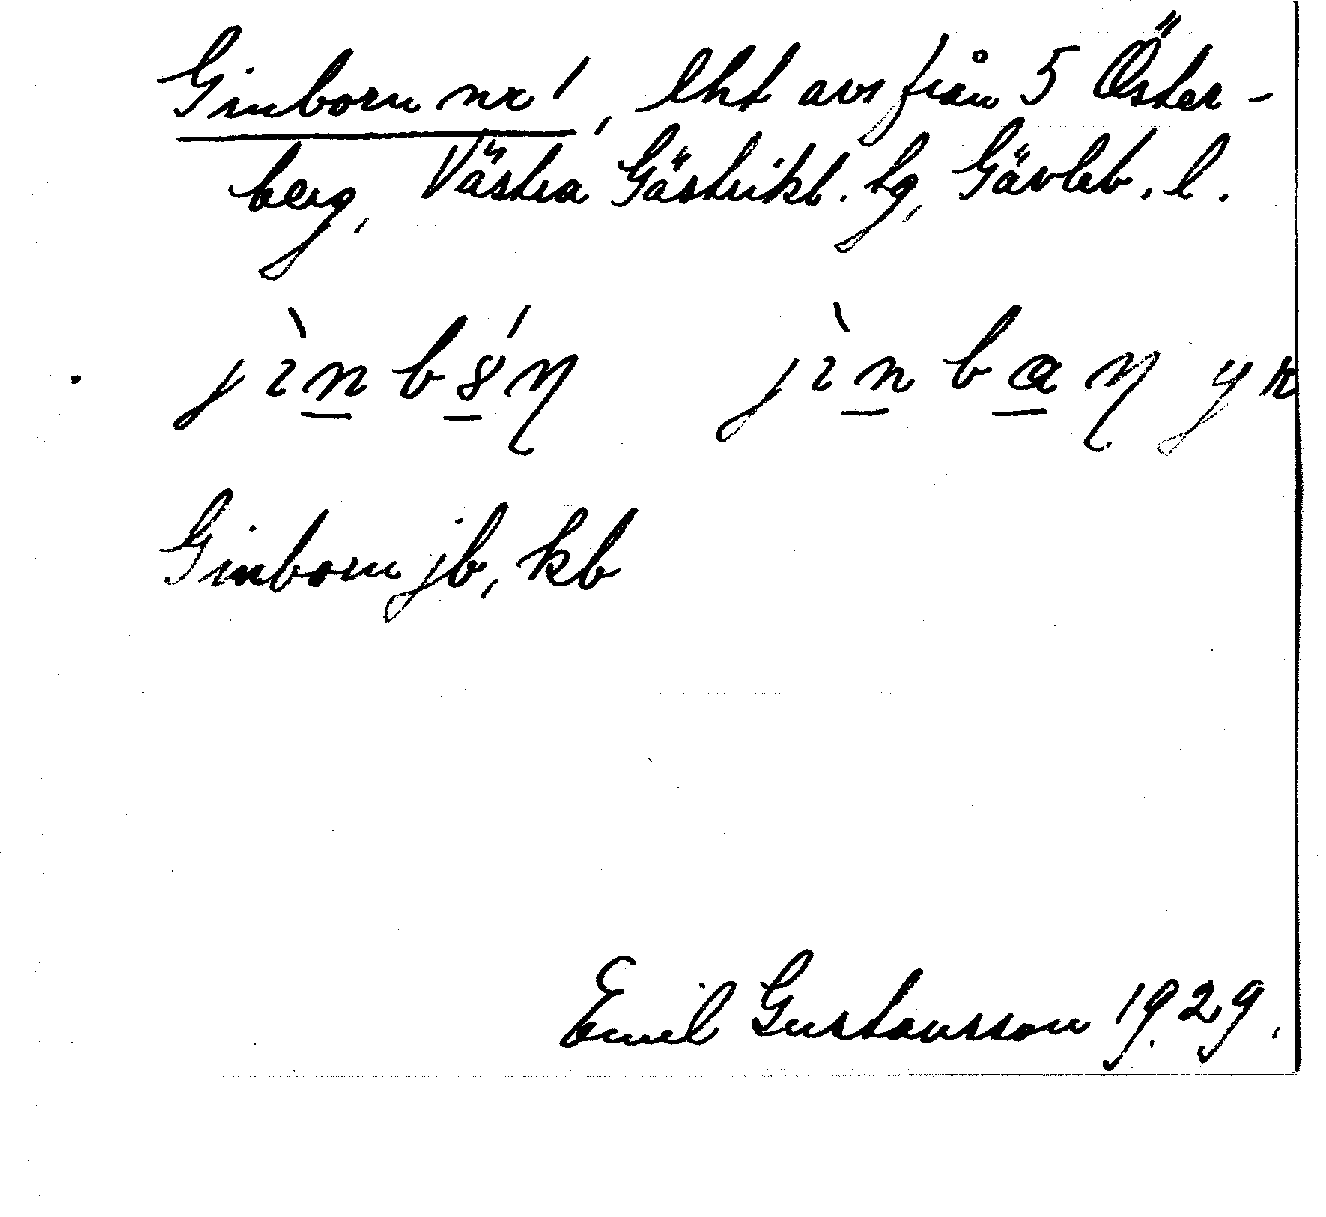 Ginborn nr 1, lht avs från 5 Öster-
berg, Västra Gästrikl. tg, Gävleb. l.
Ginborn jb, kb
Emil Gustavsson 1929.